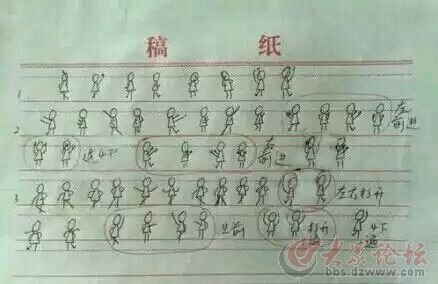 稿 纸
1
左前进
2
退4下
右前进
3
左右打开
打开
4下
大众论坛
bbs.dzwww.com